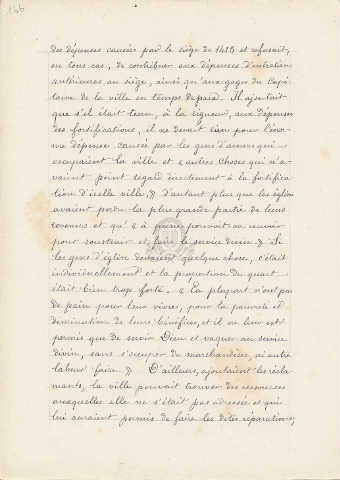 166
des dépenses causées par le siège de 1415 et refusait,
en tous cas, de contribuer aux dépenses d'entretien
antérieures au siège, ainsi qu'aux gages du Capi-
taine de la ville en temps de paix. Il ajoutait
que s'il était tenu, à la rigueur, aux dépenses
des fortifications, il ne devait rien pour l'énor-
me dépense causée par les gens d'armes qui
occupaient la ville et « autres choses qui n'a-
vaient point regard directement à la fortifica-
tion d'icelle ville, » d'autant plus que les églises
avaient perdu la plus grande partie de leurs
revenus et qu' « à peine pouvait on sauver
pour soustenir et faire le service divin. » Si
les gens d'église devaient quelque chose, c'était
individuellement et la proportion du quart
était bien trop forte. « La plupart n'ont pas
de pain pour leur vivre, pour la pauvreté et
diminution de leurs bénéfices, et il ne leur est
permis que de servir Dieu et vaquer au service
divin, sans s'occuper de marchandises, ni autre
labeur faire. » D'ailleurs, ajoutaient les récla-
mants, la ville pouvait trouver des ressources
auxquelles elle ne s'était pas adressée et qui
lui auraient permis de faire les dites réparations,